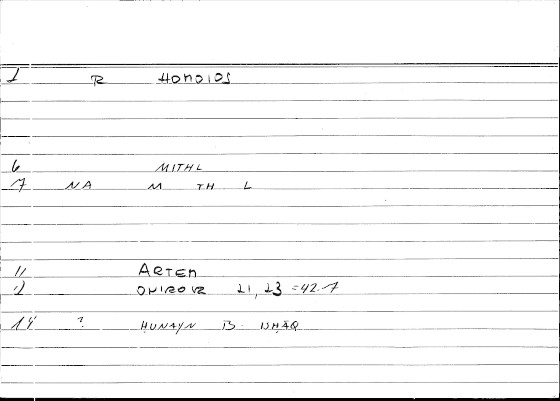 1 R HOMOIOS
6 MITHL
7 NA M TH L
11 ARTEM
12 ONIROCR 21,23 =42.7
14 ? HUNAYN B. ISHĀQ